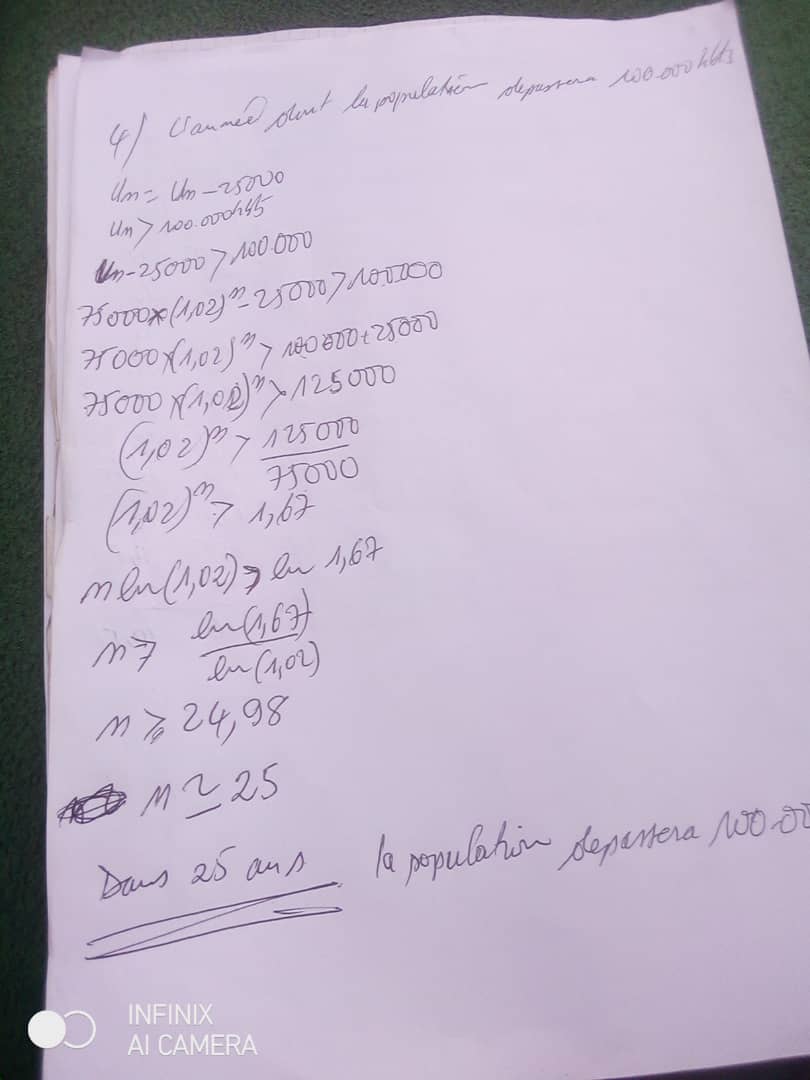 4) L'année dont la population depassera 100.000 hbts
Un = Un - 25000
Un > 100.000 hbts
Un - 25000 > 100.000
75000 × (1,02)^n - 25000 > 100000
75000 × (1,02)^n > 100000 + 25000
75000 × (1,02)^n > 125000
(1,02)^n > 125000
75000
(1,02)^n > 1,67
n ln(1,02) > ln 1,67
n > ln(1,67)
ln(1,02)
n ≥ 24,98
n ≃ 25
Dans 25 ans la population depassera 100.00
INFINIX
AI CAMERA